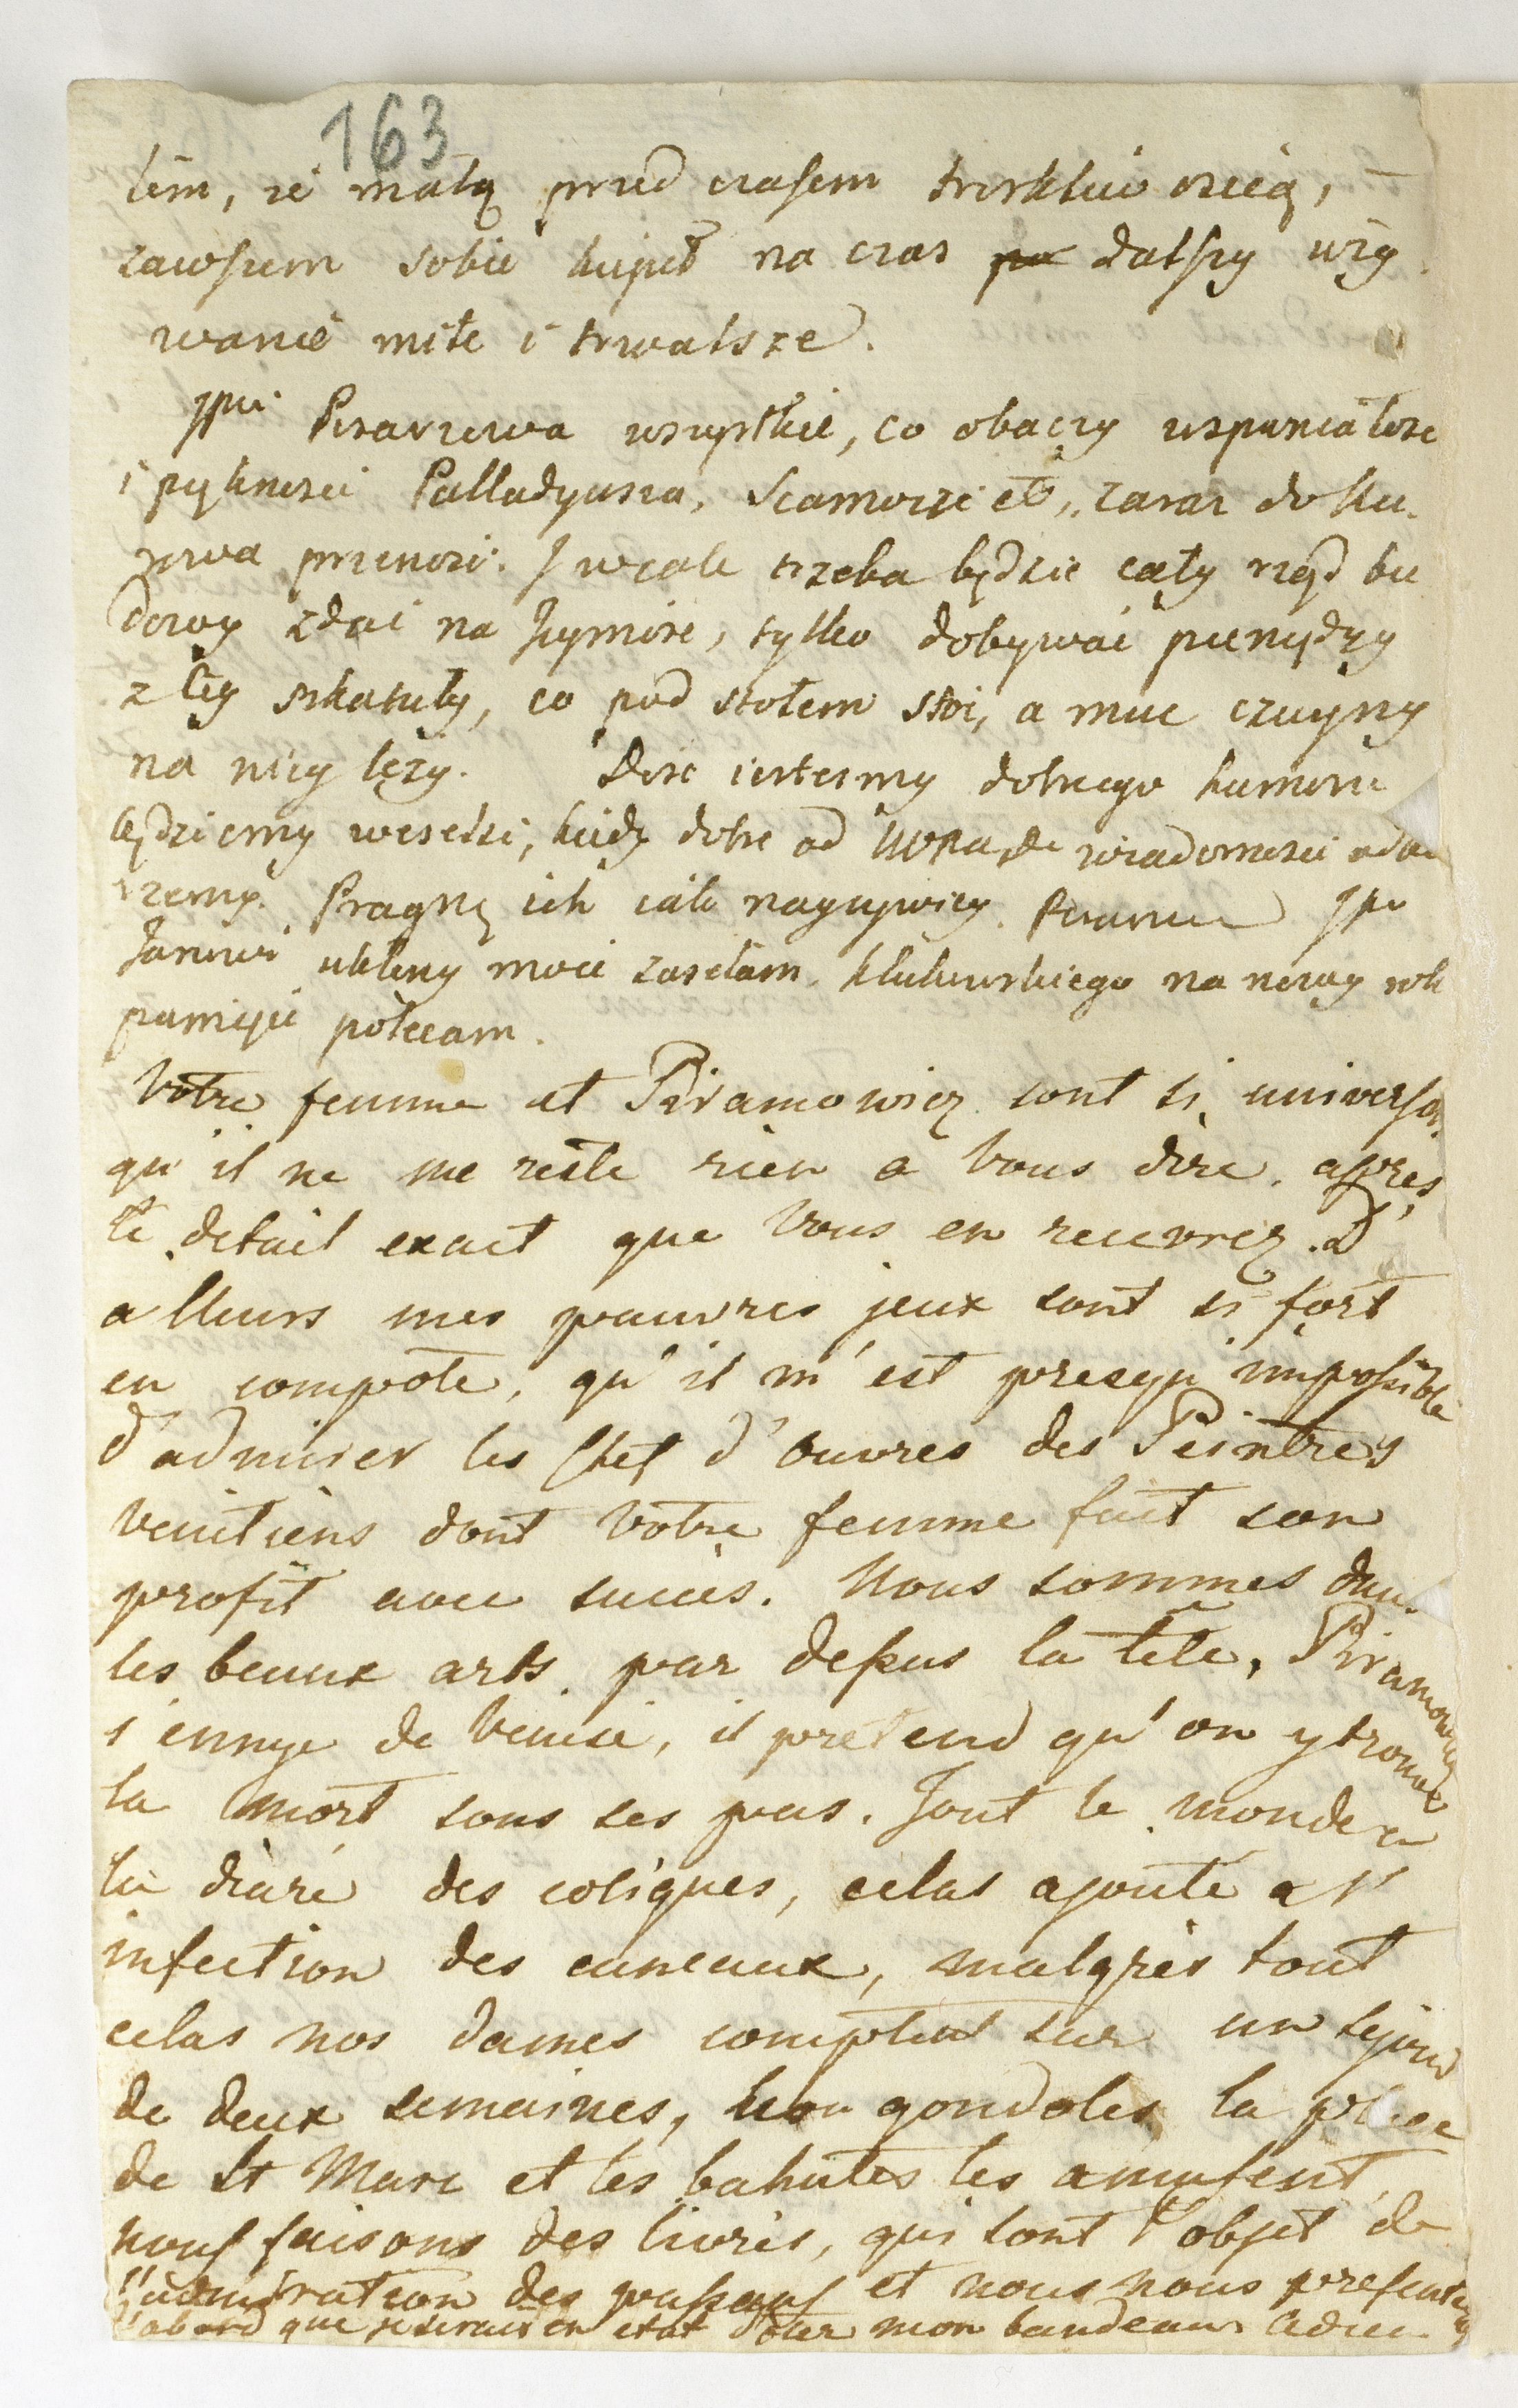 163
tém, że małą przed czasem troskliwością,
zawszem sobie kupił na czas dalszy uży
wanie miłe i trwalsze.
Jpni Pisarzowa wszystkie, co obaczy wspaniałosc
i pięknosci Palladyusza, Scamozzi etc, zaraz do Ku-
rowa przenosi. I wcale trzeba będzie cały rząd bu
dowy zdać na Jeymosc, tylko dobywać pieniędzy
z tey szkatuły, co pod stołem stoi, a muc czuyny
na niey leży. Dosc iestesmy dobrego humoru
będziemy weselsi, kiedy dobre od wiadomosci
Pragnę ich iak nayzywiey. Jpu
ukłony moie zasełam. na nowy rok
pamięci polecam.
Votre femme et Piramowicz sont si
qu'il ne me reste rien a Vous dire, apres
le detail exact que Vous en recevrez. D'
alleurs mes pauvres jeux sont si fort
en compote, qu'il m'est presqu' impossible
d'admirer les Chef d'ouvres des Peintres
venitiens dont Votre femme fait son
profit avec succes. Nous sommes dans
les beaux arts par dessus la tête, Piramowicz
s'ennye de Venise, il pretend qu'on y trouve
la mort sous ses pas. Tout le monde a
la diaré des coliques, celas ajoute a l'
infection des caneaux, malgrès tout
celas nos dames comptent sur un sejour
de deux semaines, gondoles la place
de St Marc et les bahutes les amusent,
nous faisons des livres, qui sont l'objet de
l'admiration des passans et nous nous
d'abord que je serais en etat d'oter mon bandeau Adieu